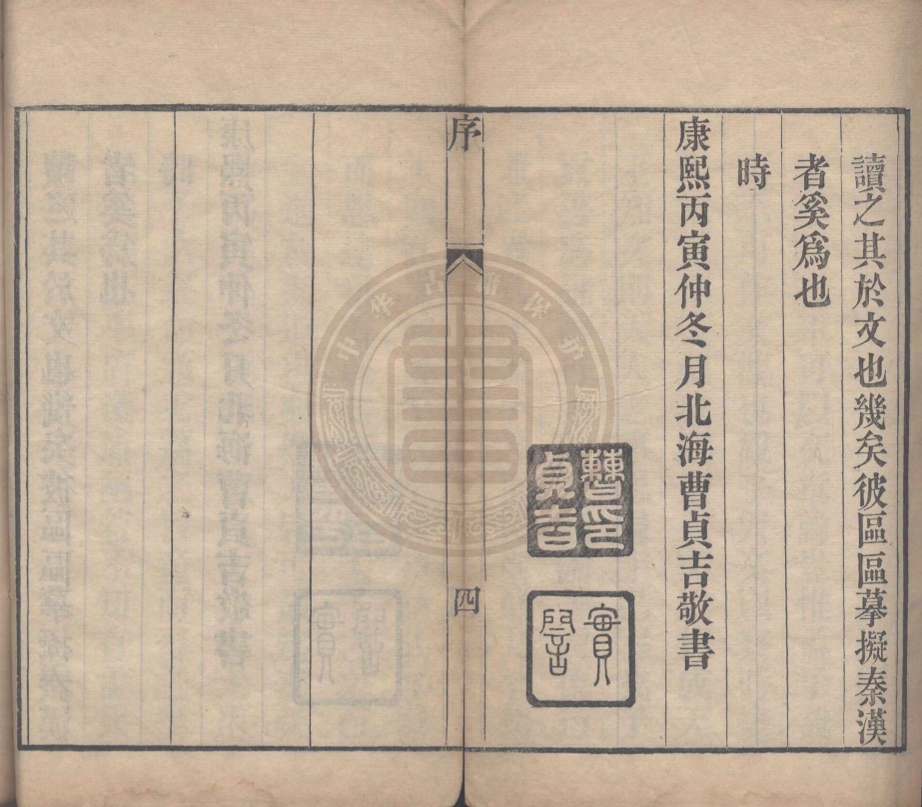 讀之其於文也幾矣彼區區摹擬秦漢
者奚爲也
時
康熙丙寅仲冬月北海曹貞吉敬書
曹印貞吉
實
序
四
中华古籍保护